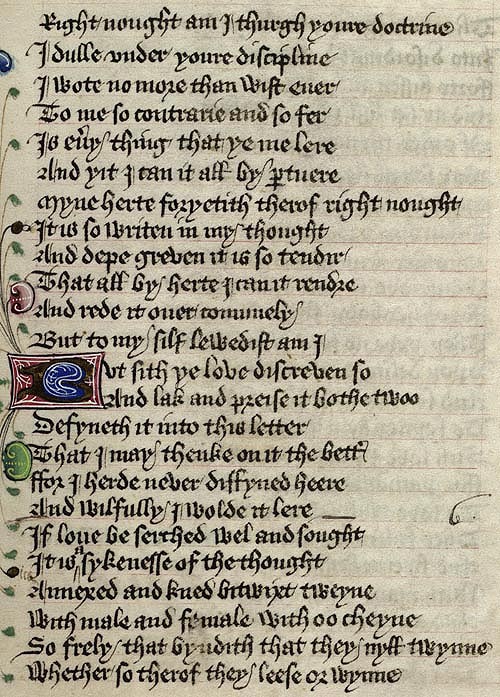 Right nought am I thurgh youre doctrine
I dulle vnder youre discipline
I wote no more than wist euer
To me so contrarie and so fer
Is eu'y thing that ye me lere
And yit I can it all by p'tuere
Myne herte foryetith therof right nought
It is so writen in my thought
And depe greven it is so tendir
That all by herte I can it rendre
And rede it ouer comunely
But to my silf lewedist am I
But sith ye love discreven so
And lak and preise it bothe twoo
Defyneth it into this letter
That I may thenke on it the bett'
ffor I herde never diffyned heere
And wilfully I wolde it lere
If loue be serched wel and sought
It is a sykenesse of the thought
Annexed and kned bitwixt tweyne
With male and female with oo cheyne
So frely that byndith that they nyll twynne
Whether so therof they leese or wynne